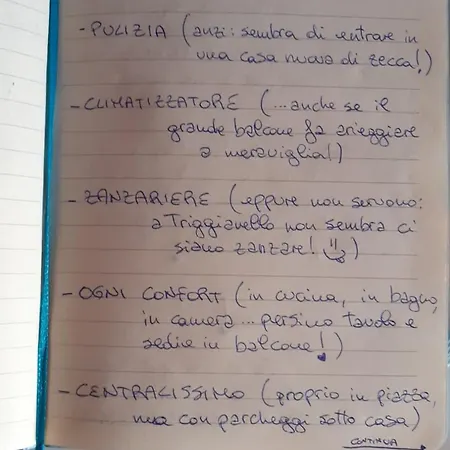 - PULIZIA (anzi: sembra di entrare in
una casa nuova di zecca!)
- CLIMATIZZATORE (...anche se il
grande balcone fa arieggiare
a meraviglia!)
- ZANZARIERE (eppure non servono:
a Triggianello non sembra ci
siano zanzare!)
- OGNI CONFORT (in cucina, in bagno,
in camera... persino tavolo e
sedie in balcone!)
- CENTRALISSIMO (proprio in piazza,
ma con parcheggi sotto casa)
CONTINUA